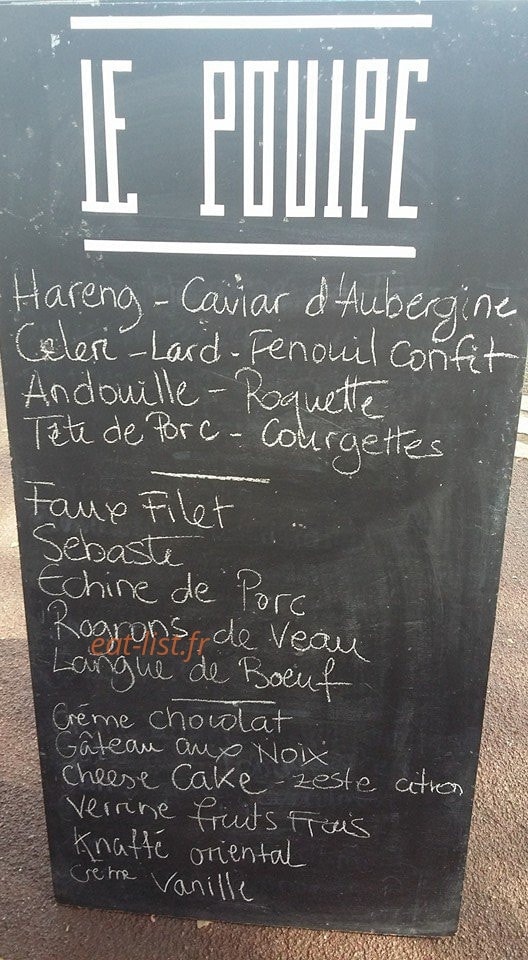 LE POULPE
Hareng - Caviar d'Aubergine
Celeri - Lard - Fenouil confit
Andouille - Roquette
Tête de Porc - Courgettes
Faux Filet
Sebaste
Echine de Porc
Rognons de Veau
eat-list.fr
Langue de Boeuf
Crème chocolat
Gâteau aux Noix
Cheese Cake - zeste citron
Verrine fruits Frais
Knaffé oriental
Crème Vanille